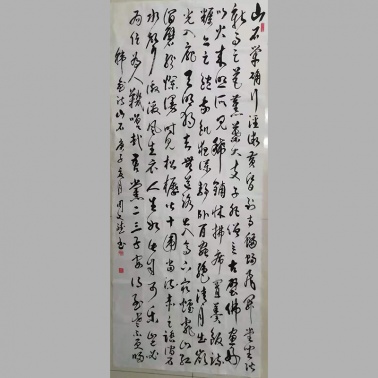 山石犖确行徑微黄昏到寺蝙蝠飛昇堂坐階
新雨足芭蕉葉大支子肥僧言古壁佛畫好
以火来照所見稀鋪床拂席置羹飯疏
糲亦足飽我飢夜深静卧百蟲絶清月出嶺
光入扉天明獨去無道路出入高下窮烟霏山紅
澗碧紛爛漫時見松櫪皆十圍當流赤足蹋澗石
水聲激激風生衣人生如此自可樂豈必
局促為人鞿嗟哉吾黨二三子安得至老不更歸
韓愈詩山石 庚子 月 周文 書